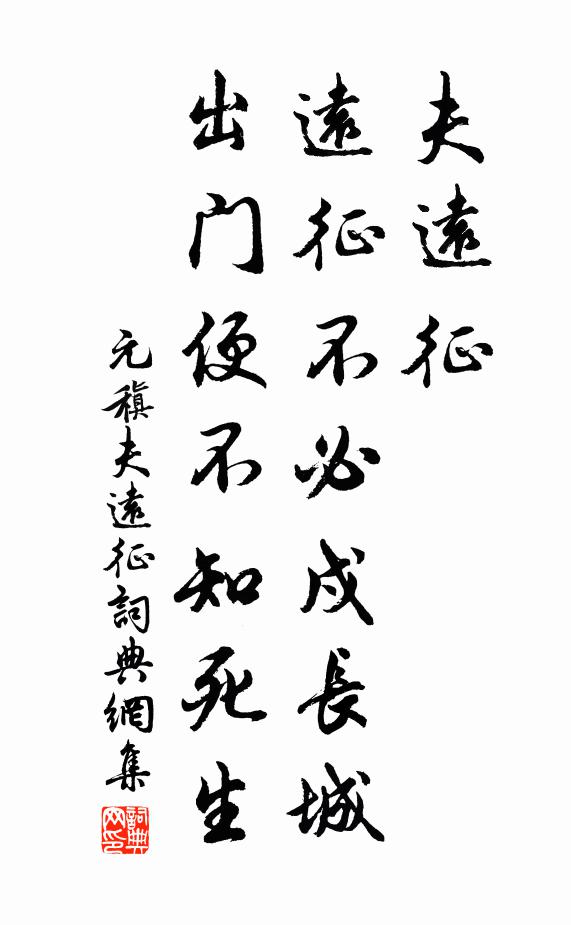 夫遠征
遠征不必戍長城
出門便不知死生
元稹夫遠征詞典網集
詞典网印